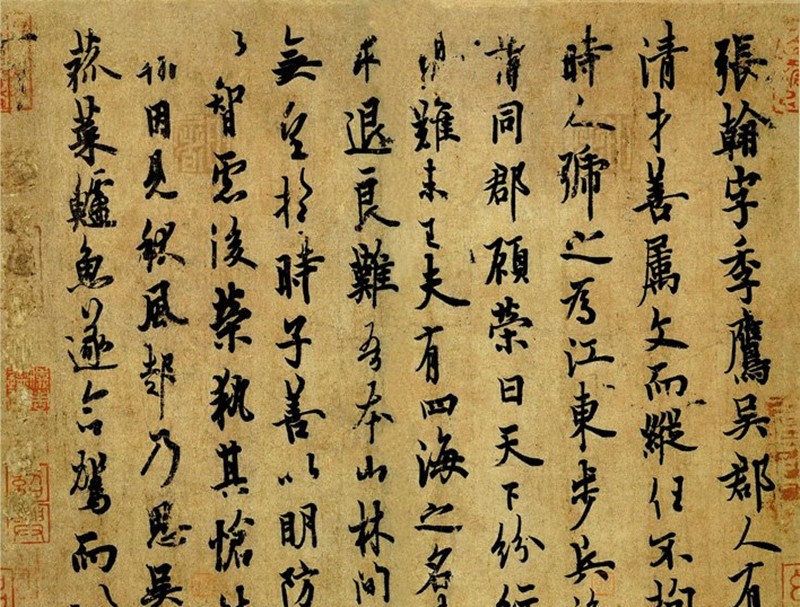 張翰字季鷹吳郡人有
清才善属文而縱任不拘
時人號之為江東步兵後
謂同郡顧榮曰天下紛紜
難未已夫有四海之名
求退良難吾本山林間
無望於時子善以明防
以智慮後榮執其愴然
翰因見秋風起乃思吳
菰菜鱸魚遂命駕而